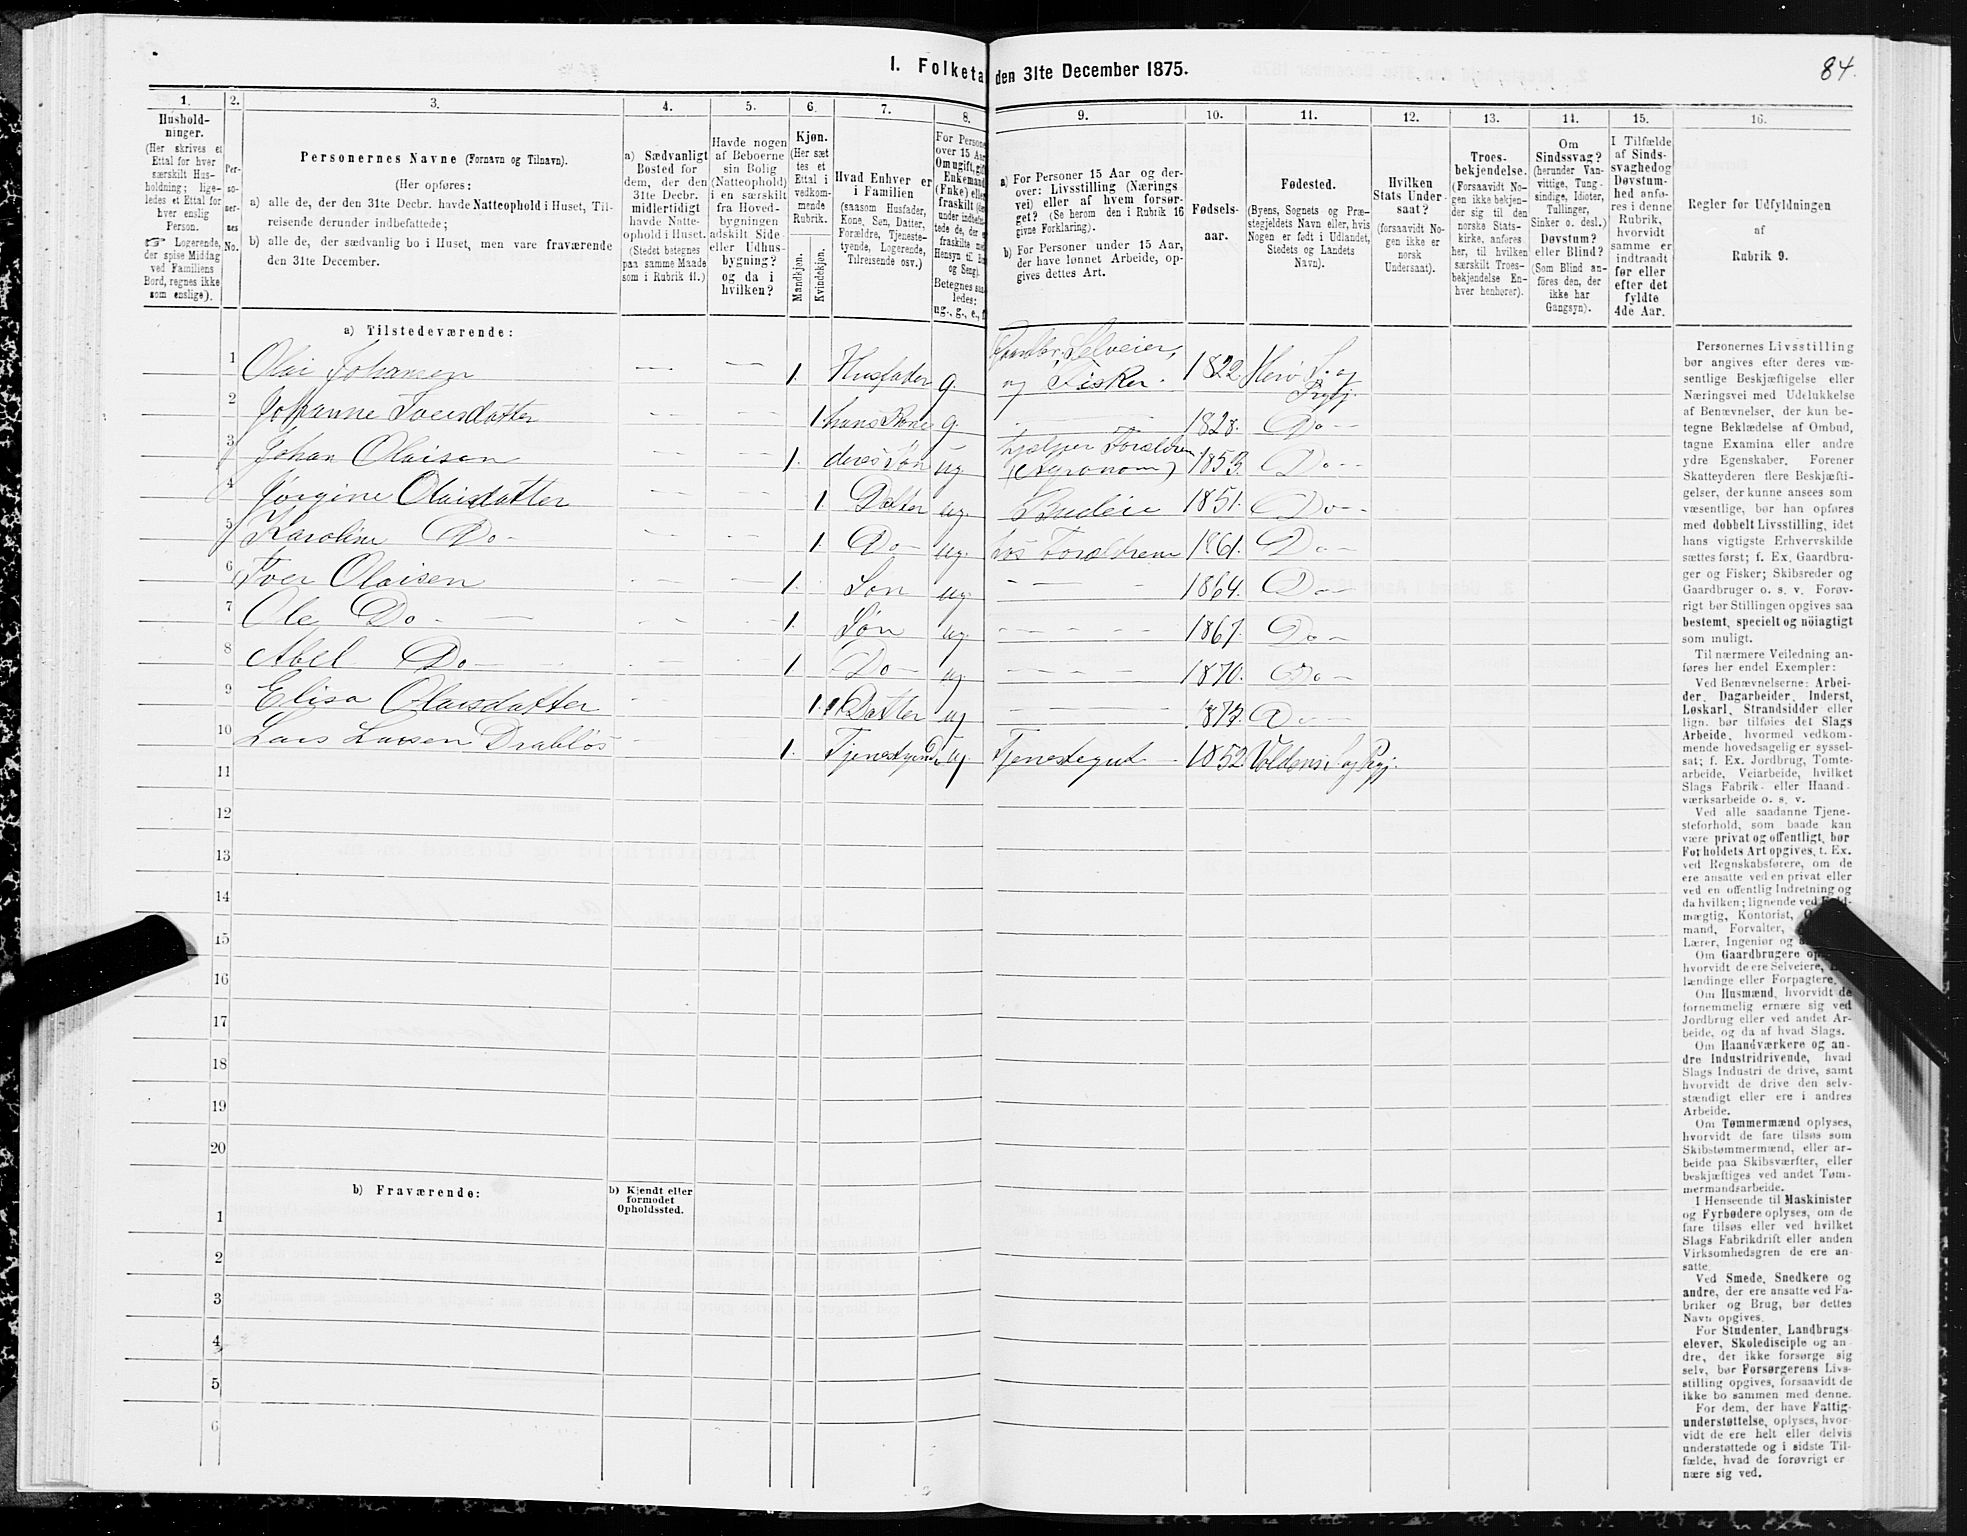 1. Folketa den 31te December 1875.
84.
1.
Hushold-
ninger.
(Her skrives et
Ettal for hver
særskilt Hus-
holdning; lige-
ledes et Ettal for
hver enslig
Person.
Logerende,
der spise Middag
ved Familiens
Bord, regnes ikke
som enslige).
2.
Per-
so-
ner-
nes
No.
3.
Personernes Navne (Fornavn og Tilnavn).
(Her opføres:
a) alle de, der den 31te Decbr. havde Natteophold i Huset, Til-
reisende derunder indbefattede;
b) alle de, der sædvanlig bo i Huset, men vare fraværende
den 31te December.
4.
a) Sædvanligt
Bosted for
dem, der den
31te Decbr.
midlertidigt
havde Natte-
ophold i Huset.
(Stedet betegnes
paa samme Maade
som i Rubrik 11.)
5.
Havde nogen
af Beboerne
sin Bolig
(Natteophold)
i en særskilt
fra Hoved-
bygningen
adskilt Side-
eller Udhus-
bygning?
og da i
hvilken?
6.
Kjøn.
(Her sæt-
tes et
Ettal i
vedkom-
mende
Rubrik.
Mandkjøn.
Kvindekjøn.
7.
Hvad Enhver er
i Familien
(saasom Husfader,
Kone, Søn, Datter,
Forældre, Tjeneste-
tyende, Logerende,
Tilreisende osv.)
8.
For Persone
over 15 Aar
Om ugift, gif
Enkemand
(Enke) elle
fraskilt (de
under indbefat
tede de, der e
fraskilte me
Hensyn til Bo
og Seng).
Betegnes saa
ledes:
ug., g., e., f
9.
a) For Personer 15 Aar og der-
over: Livsstilling (Nærings
vei) eller af hvem forsør-
get? (Se herom den i Rubrik 16
givne Forklaring).
b) For Personer under 15 Aar,
der have lønnet Arbeide, op-
gives dettes Art.
10.
Fødsels-
aar.
11.
Fødested.
(Byens, Sognets og Præ-
stegjeldets Navn eller, hvis
Nogen er født i Udlandet,
Stedets og Landets
Navn).
12.
Hvilken
Stats Under-
saat?
(forsaavidt No-
gen ikke er
norsk
Undersaat).
13.
Troes-
bekjendelse.
(Forsaavidt No-
gen ikke bekjen-
der sig til den
norske Stats-
kirke, anføres
her, til hvilken
særskilt Troes-
bekjendelse En-
hver henhører).
14.
Om
Sindssvag?
(herunder Van-
vittige, Tung-
sindige, Idioter,
Tullinger,
Sinker o. desl.)
Døvstum?
eller Blind?
(Som Blind an-
føres den, der
ikke har
Gangsyn).
15.
I Tilfælde
af Sinds-
svaghed og
Døvstum-
hed anfø-
res i denne
Rubrik,
hvorvidt
samme er
indtraadt
før eller
efter det
fyldte
4de Aar.
16.
Regler for Udfyldningen
af
Rubrik 9.
a) Tilstedeværende:
1 Olai Johansen 1. Husfader g. Gaardbr. Selveier, og Fisker. 1822. Herø S. og Prgj.
2 Johanne Iversdatter — — 1. hans Kone g. 1828. Do —
3 Johan Olaisen — — 1. deres Søn ug hjælper Forældren (Agronom) 1853. Do —
4 Jørgine Olaisdatter — — 1. Datter ug. Budeie 1851. Do —
5 Karoline Do — — — 1. Do — ug. hos Forældrene 1861. Do —
6 Iver Olaisen — — 1. Søn ug. — — — 1864. Do —
7 Ole Do — — — 1. Søn ug. — — — 1867. Do —
8 Abel Do — — — 1. Do — ug. — — — 1870. Do —
9 Elisa Olaisdatter — — 1. Datter ug — — — Do —
10 Lars Larsen Drabløs — — 1. ug. Tjenestegut — 1852. Voldens S. og Prgj.
11
12
13
14
15
16
17
18
19
20
b) Fraværende:
b) Kjendt eller
formodet
Opholdssted.
1
2
3
4
5
6
Personernes Livsstilling
bør angives efter deres væ-
sentlige Beskjæftigelse eller
Næringsvei med Udelukkelse
af Benævnelser, der kun be-
tegne Beklædelse af Ombud,
tagne Examina eller andre
ydre Egenskaber. Forener
Skatteyderen flere Beskjæfti-
gelser, der kunne ansees som
væsentlige, bør han opføres
med dobbelt Livsstilling, idet
hans vigtigste Erhvervskilde
sættes først; f. Ex. Gaardbru-
ger og Fisker; Skibsreder og
Gaardbruger o. s. v. Forøv-
rigt bør Stillingen opgives saa
bestemt, specielt og nöiagtigt
som muligt.
Til nærmere Veiledning an-
føres her endel Exempler:
Ved Benævnelserne: Arbei-
der, Dagarbeider, Inderst,
Løskarl, Strandsidder eller
lign. bør tilføies det Slags
Arbeide, hvormed vedkom-
mende hovedsagelig er syssel-
sat; f. Ex. Jordbrug, Tomte-
arbeide, Veiarbeide, hvilket
Slags Fabrik- eller Haand-
værksarbeide o. s. v.
Ved alle saadanne Tjene-
steforhold, som baade kan
være privat og offentligt, bør
Forholdets Art opgives, t. Ex.
ved Regnskabsførere, om de
ere ansatte ved en privat eller
ved en offentlig Indretning og
da hvilken; lignende ved
mægtig, Kontorist,
mand, Forvalter,
Lærer, Ingeniør og
Om Gaardbrugere
hvorvidt de ere Selveiere,
lændinge eller Forpagtere.
Om Husmænd, hvorvidt de
fornemmelig ernære sig ved
Jordbrug eller ved andet Ar-
beide, og da af hvad Slags.
Om Haandværkere og an-
dre Industridrivende, hvad
Slags Industri de drive, samt
hvorvidt de drive den selv-
stændigt eller ere i andres
Arbeide.
Om Tømmermænd oplyses,
hvorvidt de fare tilsøs som
Skibstømmermænd, eller ar-
beide paa Skibsværfter, eller
beskjæftiges ved andet Tøm-
mermandsarbeide.
I Henseende til Maskinister
og Fyrbødere oplyses, om de
fare tilsøs eller ved hvilket
Slags Fabrikdrift eller anden
Virksomhedsgren de ere an-
satte.
Ved Smede, Snedkere og
andre, der ere ansatte ved Fa-
briker og Brug, bør dettes
Navn opgives.
For Studenter, Landbrugs-
elever, Skoledisciple og an-
dre, der ikke forsørge sig
selv, bør Forsørgerens Livs-
stilling opgives, forsaavidt de
ikke bo sammen med denne.
For dem, der have Fattig-
understøttelse, oplyses, hvor-
vidt de ere helt eller delvis
understøttede og i sidste Til-
fælde, hvad de forøvrigt er-
nære sig ved.